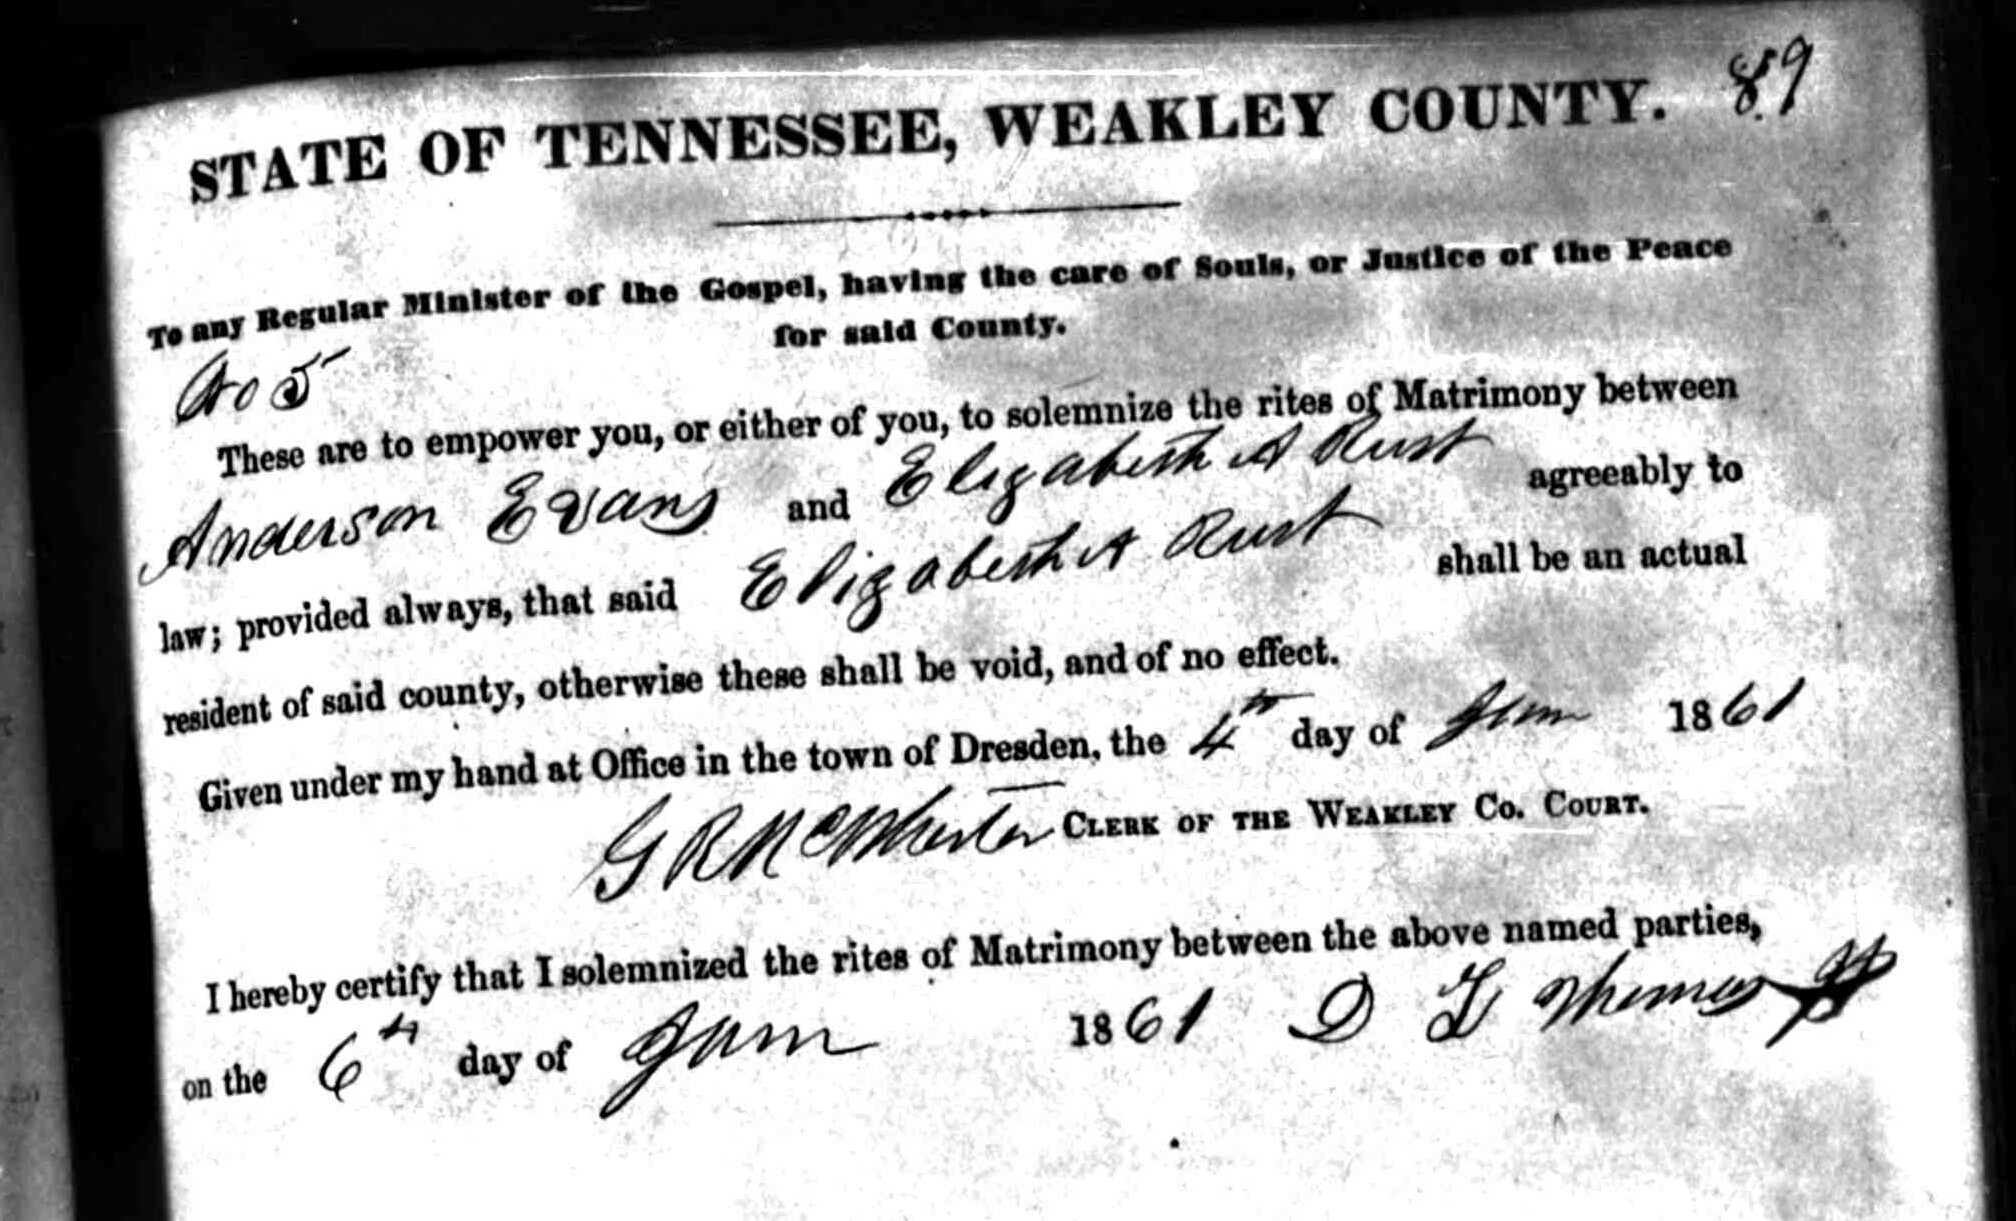 89
STATE OF TENNESSEE, WEAKLEY COUNTY.
To any Regular Minister of the Gospel, having the care of Souls, or Justice of the Peace
for said County.
No 5
These are to empower you, or either of you, to solemnize the rites of Matrimony between
Anderson Evans and Elizabeth A Rust agreeably to
law; provided always, that said Elizabeth A Rust shall be an actual
resident of said county, otherwise these shall be void, and of no effect.
Given under my hand at Office in the town of Dresden, the 4th day of 1861
G R McWherter CLERK OF THE WEAKLEY CO. COURT.
I hereby certify that I solemnized the rites of Matrimony between the above named parties,
on the 6th day of 1861 D L Thomas